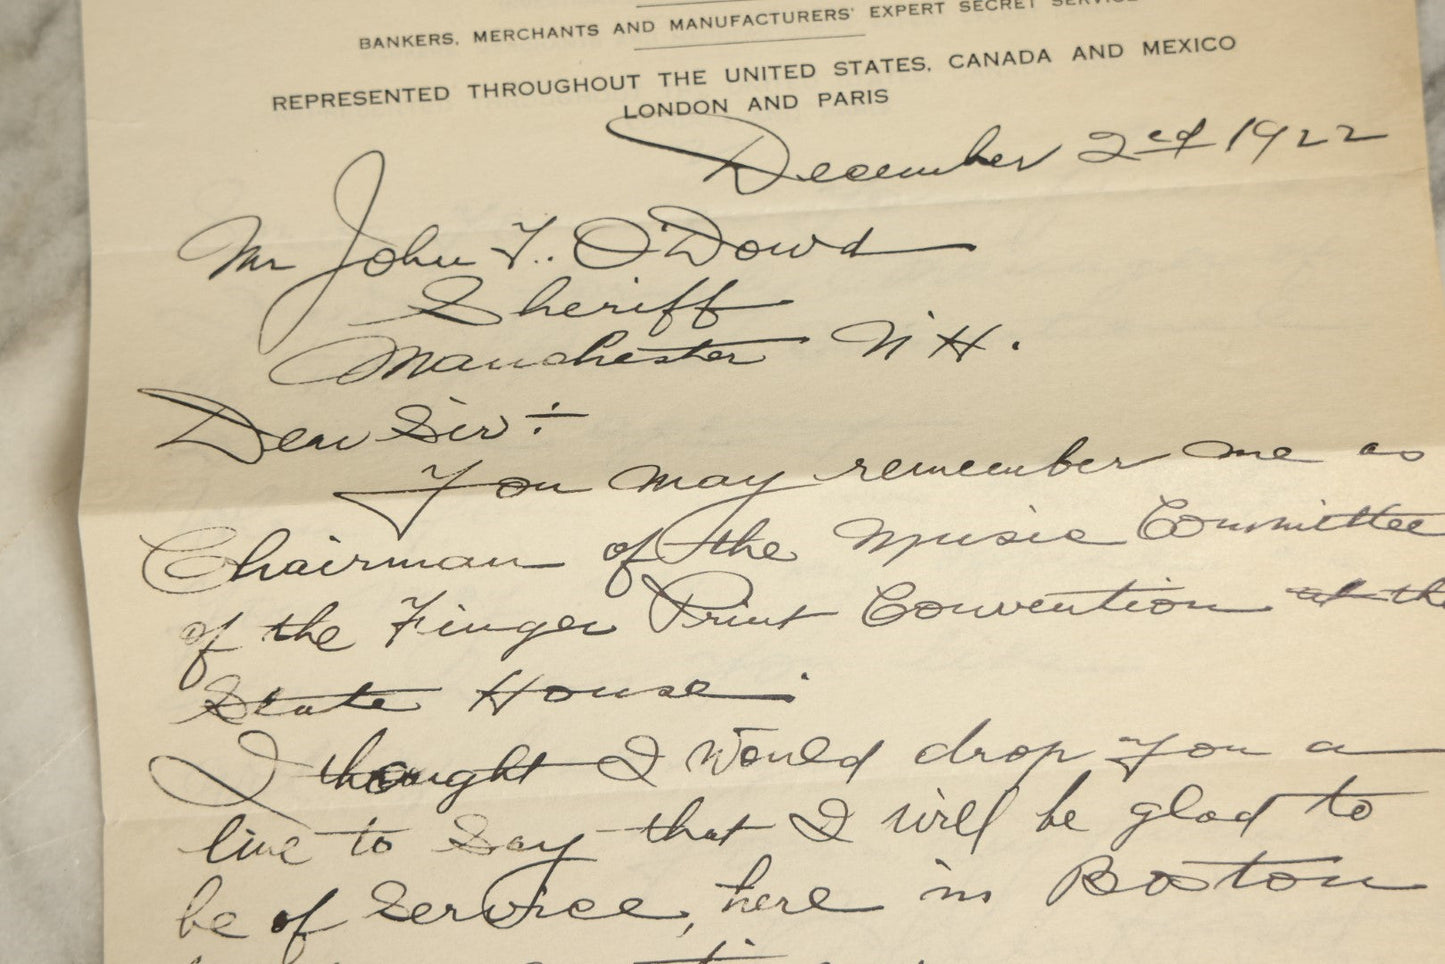 BANKERS, MERCHANTS AND MANUFACTURERS' EXPERT SECRET SERVICE
REPRESENTED THROUGHOUT THE UNITED STATES, CANADA AND MEXICO
LONDON AND PARIS
December 2ed 1922
Mr John F. O'Dowd
Sheriff
Manchester N H.
Dear Sir :-
You may remember me as
Chairman of the Music Committee
of the Finger Print Convention at the
State House.
I thought I would drop you a
line to say that I will be glad to
be of service, here in Boston